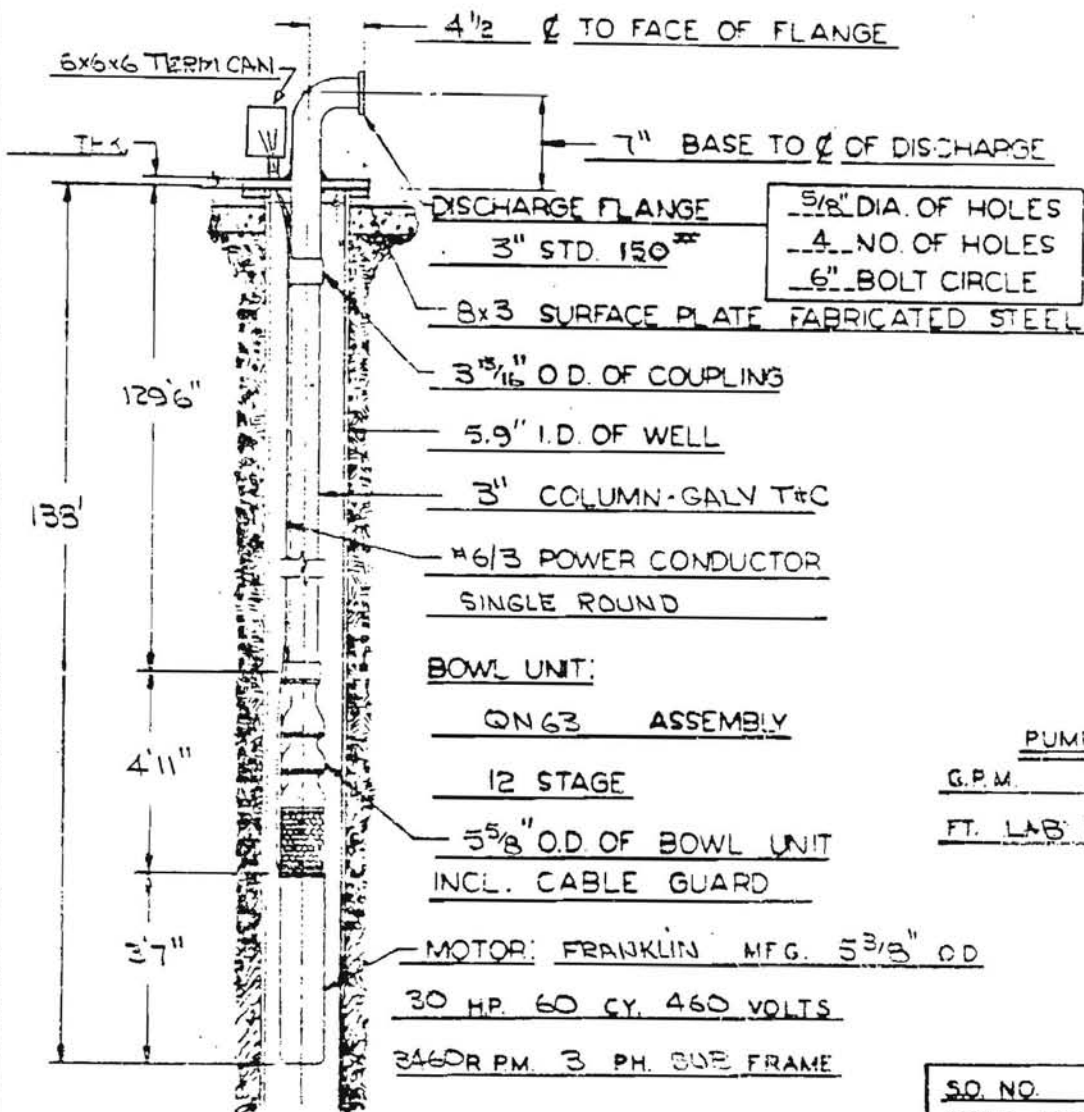 4 1/2 ℄ TO FACE OF FLANGE
6x6x6 TERM CAN
THK.
7" BASE TO ℄ OF DISCHARGE
DISCHARGE FLANGE
3" STD. 150#
5/8" DIA. OF HOLES
4 NO. OF HOLES
6" BOLT CIRCLE
8x3 SURFACE PLATE FABRICATED STEEL
3 13/16" O.D. OF COUPLING
129'6"
5.9" I.D. OF WELL
3" COLUMN-GALV T&C
138'
#6/3 POWER CONDUCTOR
SINGLE ROUND
BOWL UNIT:
QN63 ASSEMBLY
12 STAGE
4'11"
5 5/8" O.D. OF BOWL UNIT
INCL. CABLE GUARD
PUMP
G.P.M.
FT. LAB
3'7"
MOTOR: FRANKLIN MFG. 5 3/8" OD
30 HP. 60 CY. 460 VOLTS
3460 RPM. 3 PH. SUB FRAME
S.O. NO.